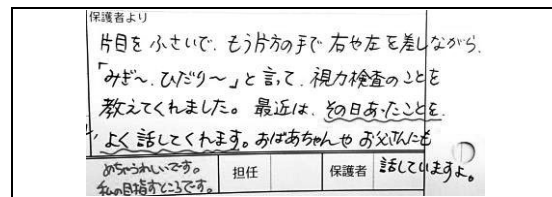 保護者より
片目をふさいで、もう片方の手で右や左を差しながら、
「みぎ〜、ひだり〜」と言って、視力検査のことを
教えてくれました。最近は、その日あったことを
よく話してくれます。おばあちゃんやお父さんにも
話していますよ。
めちゃうれしいです。
私の目指すところです。
担任
保護者